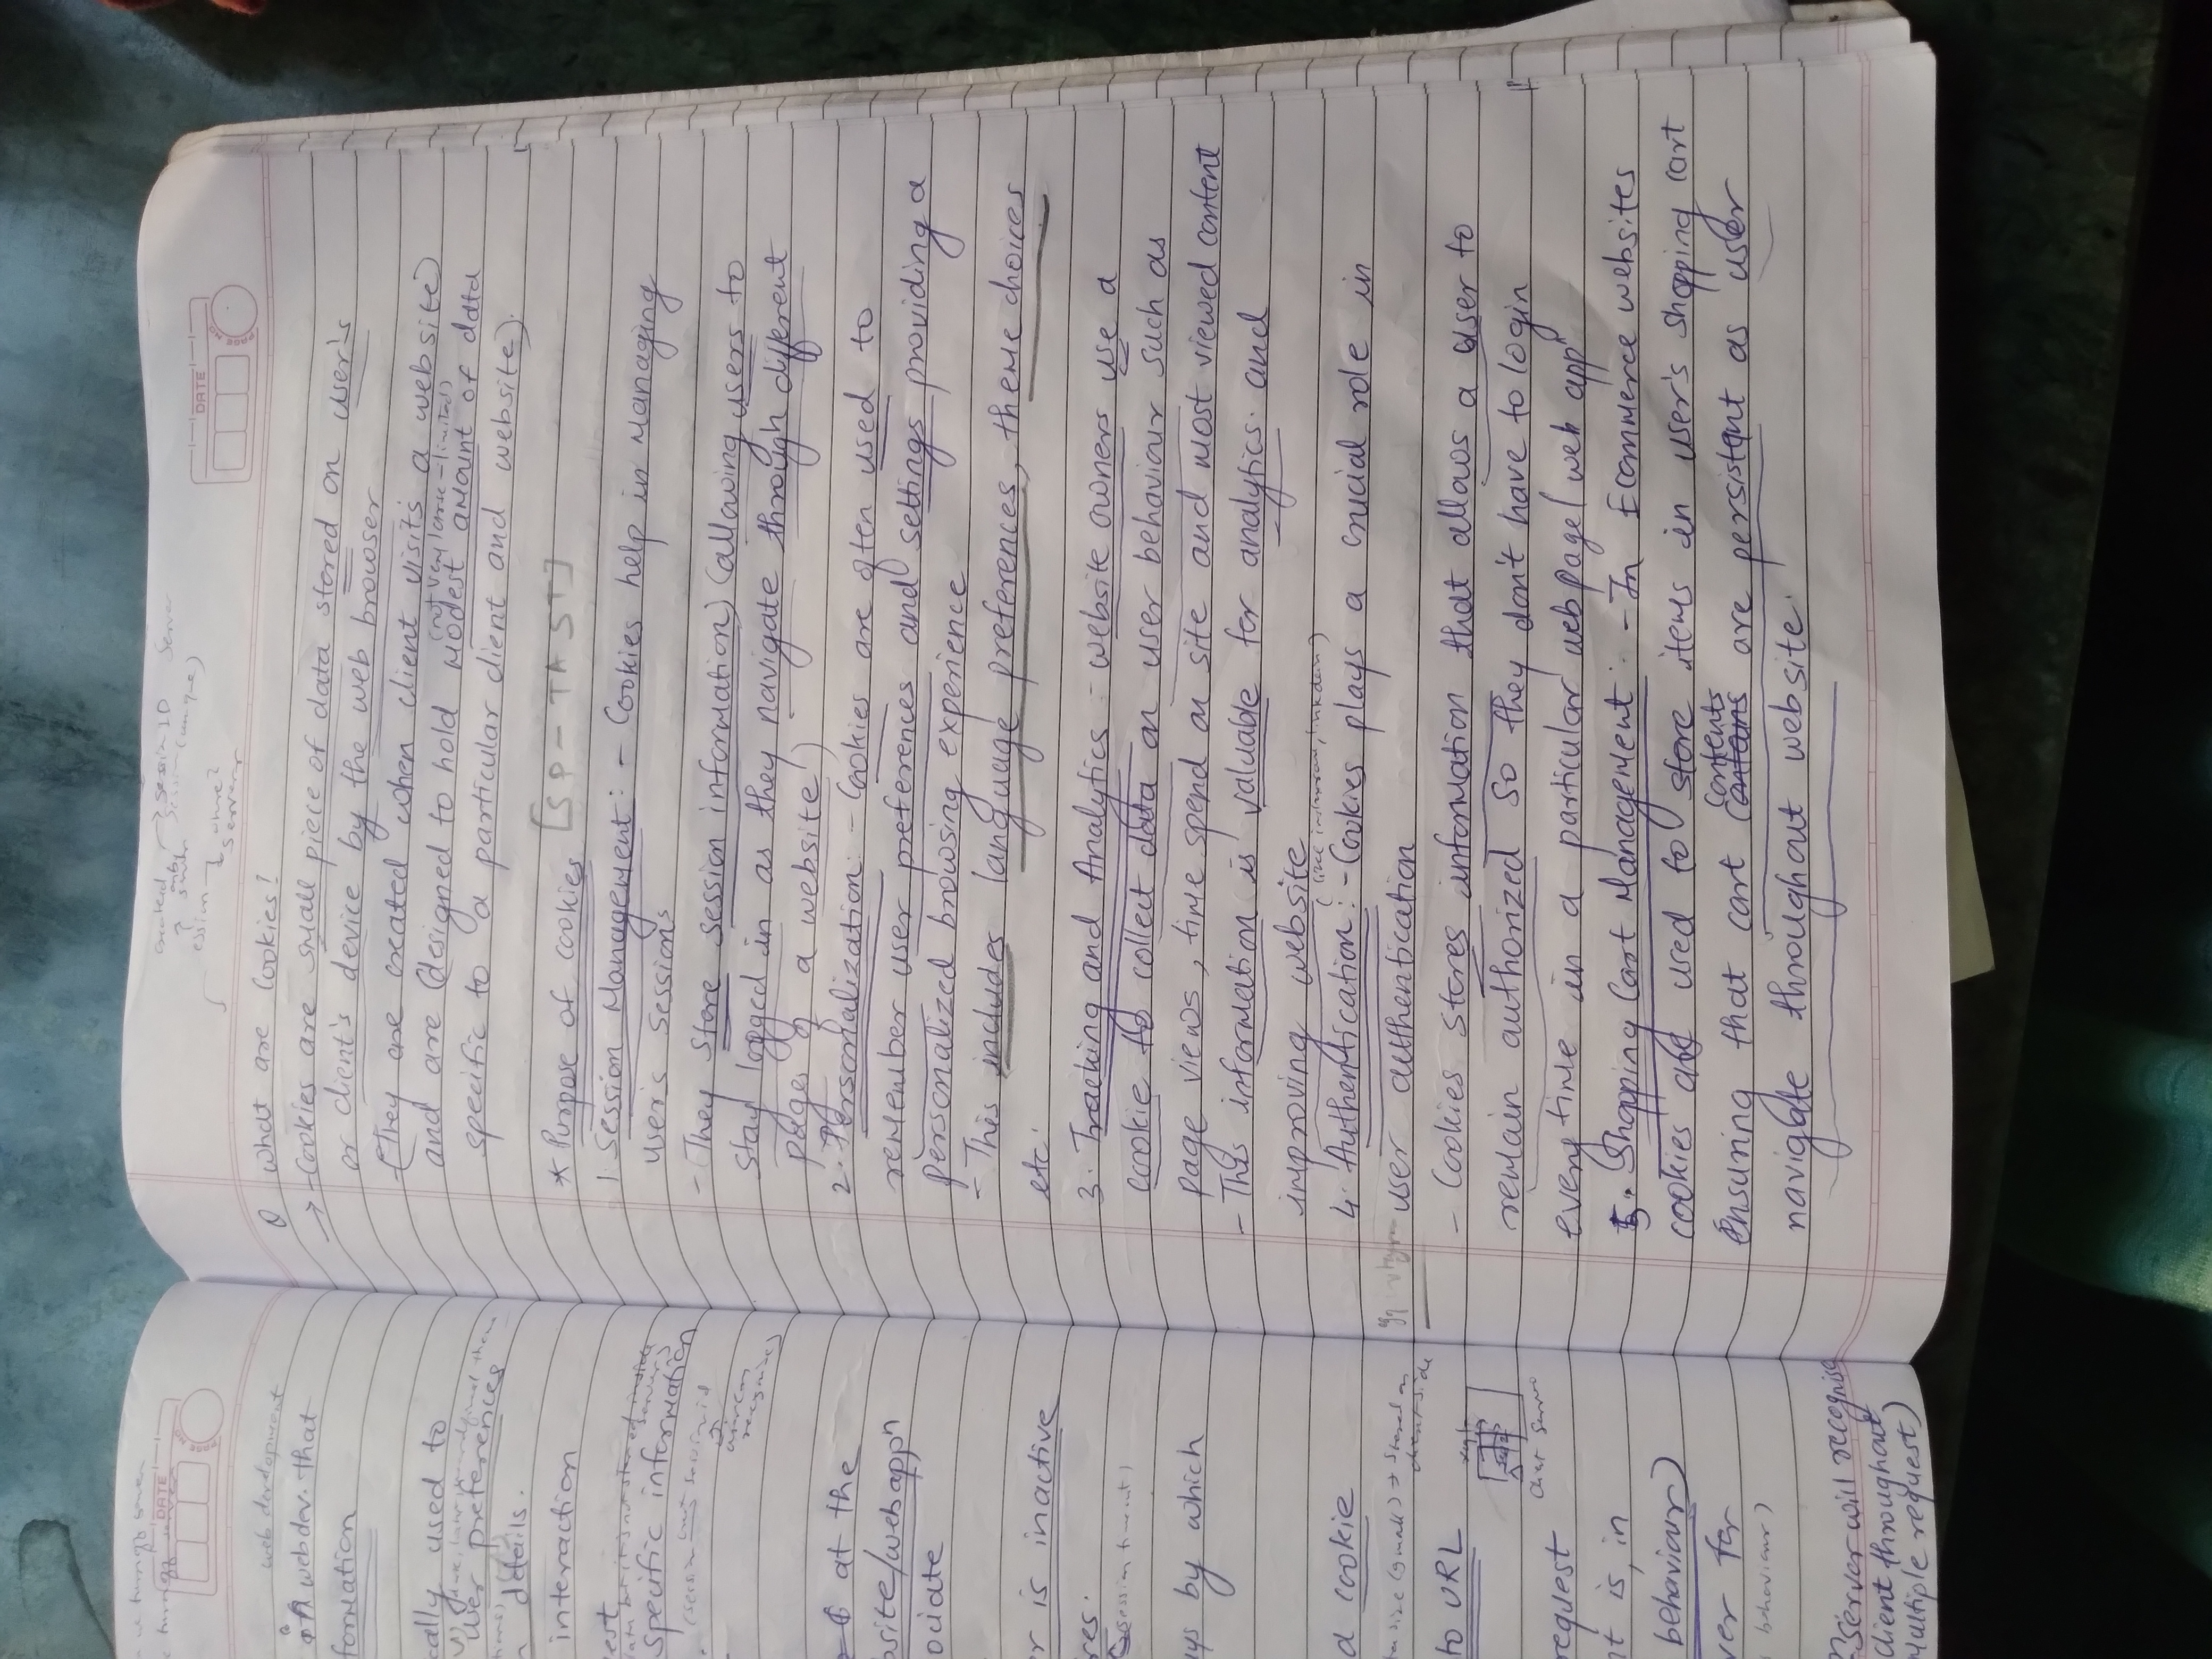 DATE
PAGE NO
web development
webdev. that
formation
cally used to
user preferences
details.
interaction
est
specific information
at the
bsite/webappⁿ
ociate
r is inactive
res.
(session timeout)
ys by which
d cookie
size (small) → stored on
client side
to URL
request
nt is, in
behaviour)
ver for
behaviour)
Server will recognise
client throughout
multiple request)
created → Session ID Server
only Session (unique)
ession where?
servers
DATE
PAGE NO
Q What are Cookies?
→ - Cookies are small piece of data stored on user's
or client's device by the web browser
- (They are created when client visits a website)
(not very large - limited)
and are (designed to hold modest amount of data
specific to a particular client and website).
* Purpose of cookies [SP - TAST]
1. Session Management: - Cookies help in managing
user's sessions
- They store session information) (allowing users to
stay logged in as they navigate through different
pages of a website)
2. Personalization: - Cookies are often used to
remember user preferences and settings providing a
personalized browsing experience
- This includes language preferences, theme choices
etc.
3. Tracking and Analytics - website owners use a
cookie to collect data on user behaviour such as
page views, time spend on site and most viewed content
- This information is valuable for analytics. and
improving website
4. Authentication: - Cookies plays a crucial role in
user authentication
- Cookies stores information that allows a user to
remain authorized so they don't have to login
every time in a particular webpage/ web appⁿ
5. Shopping Cart Management: - In Ecommerce websites
cookies are used to store items in user's shopping cart
contents
Ensuring that cart are persistent as user
navigate throughout website.